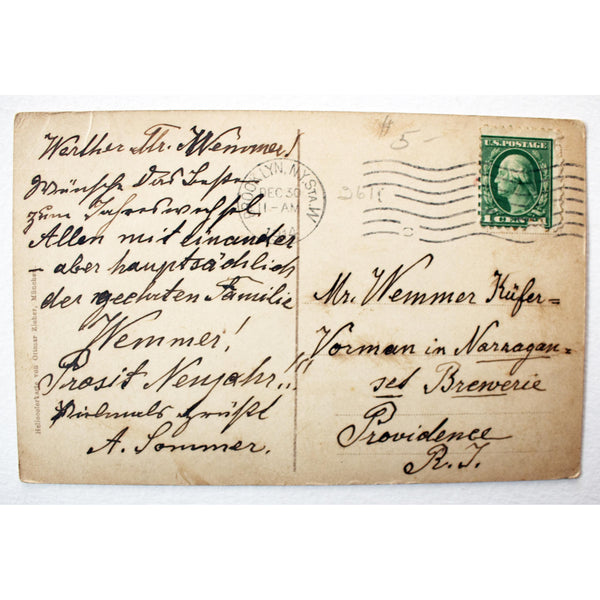 Werther Mr. Wemmer!
Wünsche das Beste
zum Jahreswechsel
Allen mit einander
- aber hauptsächlich
der geehrten Familie
Wemmer!
Prosit Neujahr!!
Vielmals grüßt
A. Sommer.
Heliocolorkarte von Ottmar Zieher, München
BROOKLYN, N.Y. STA. W
DEC 30
11-AM
$ 5-
U.S. POSTAGE
1 CENT 1
Mr. Wemmer Küfer=
Vorman in Narragan=
set Brewerie
Providence
R. I.